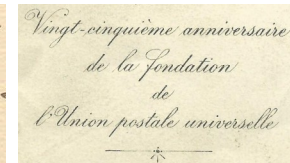 Vingt-cinquième anniversaire
de la fondation
de
l'Union postale universelle